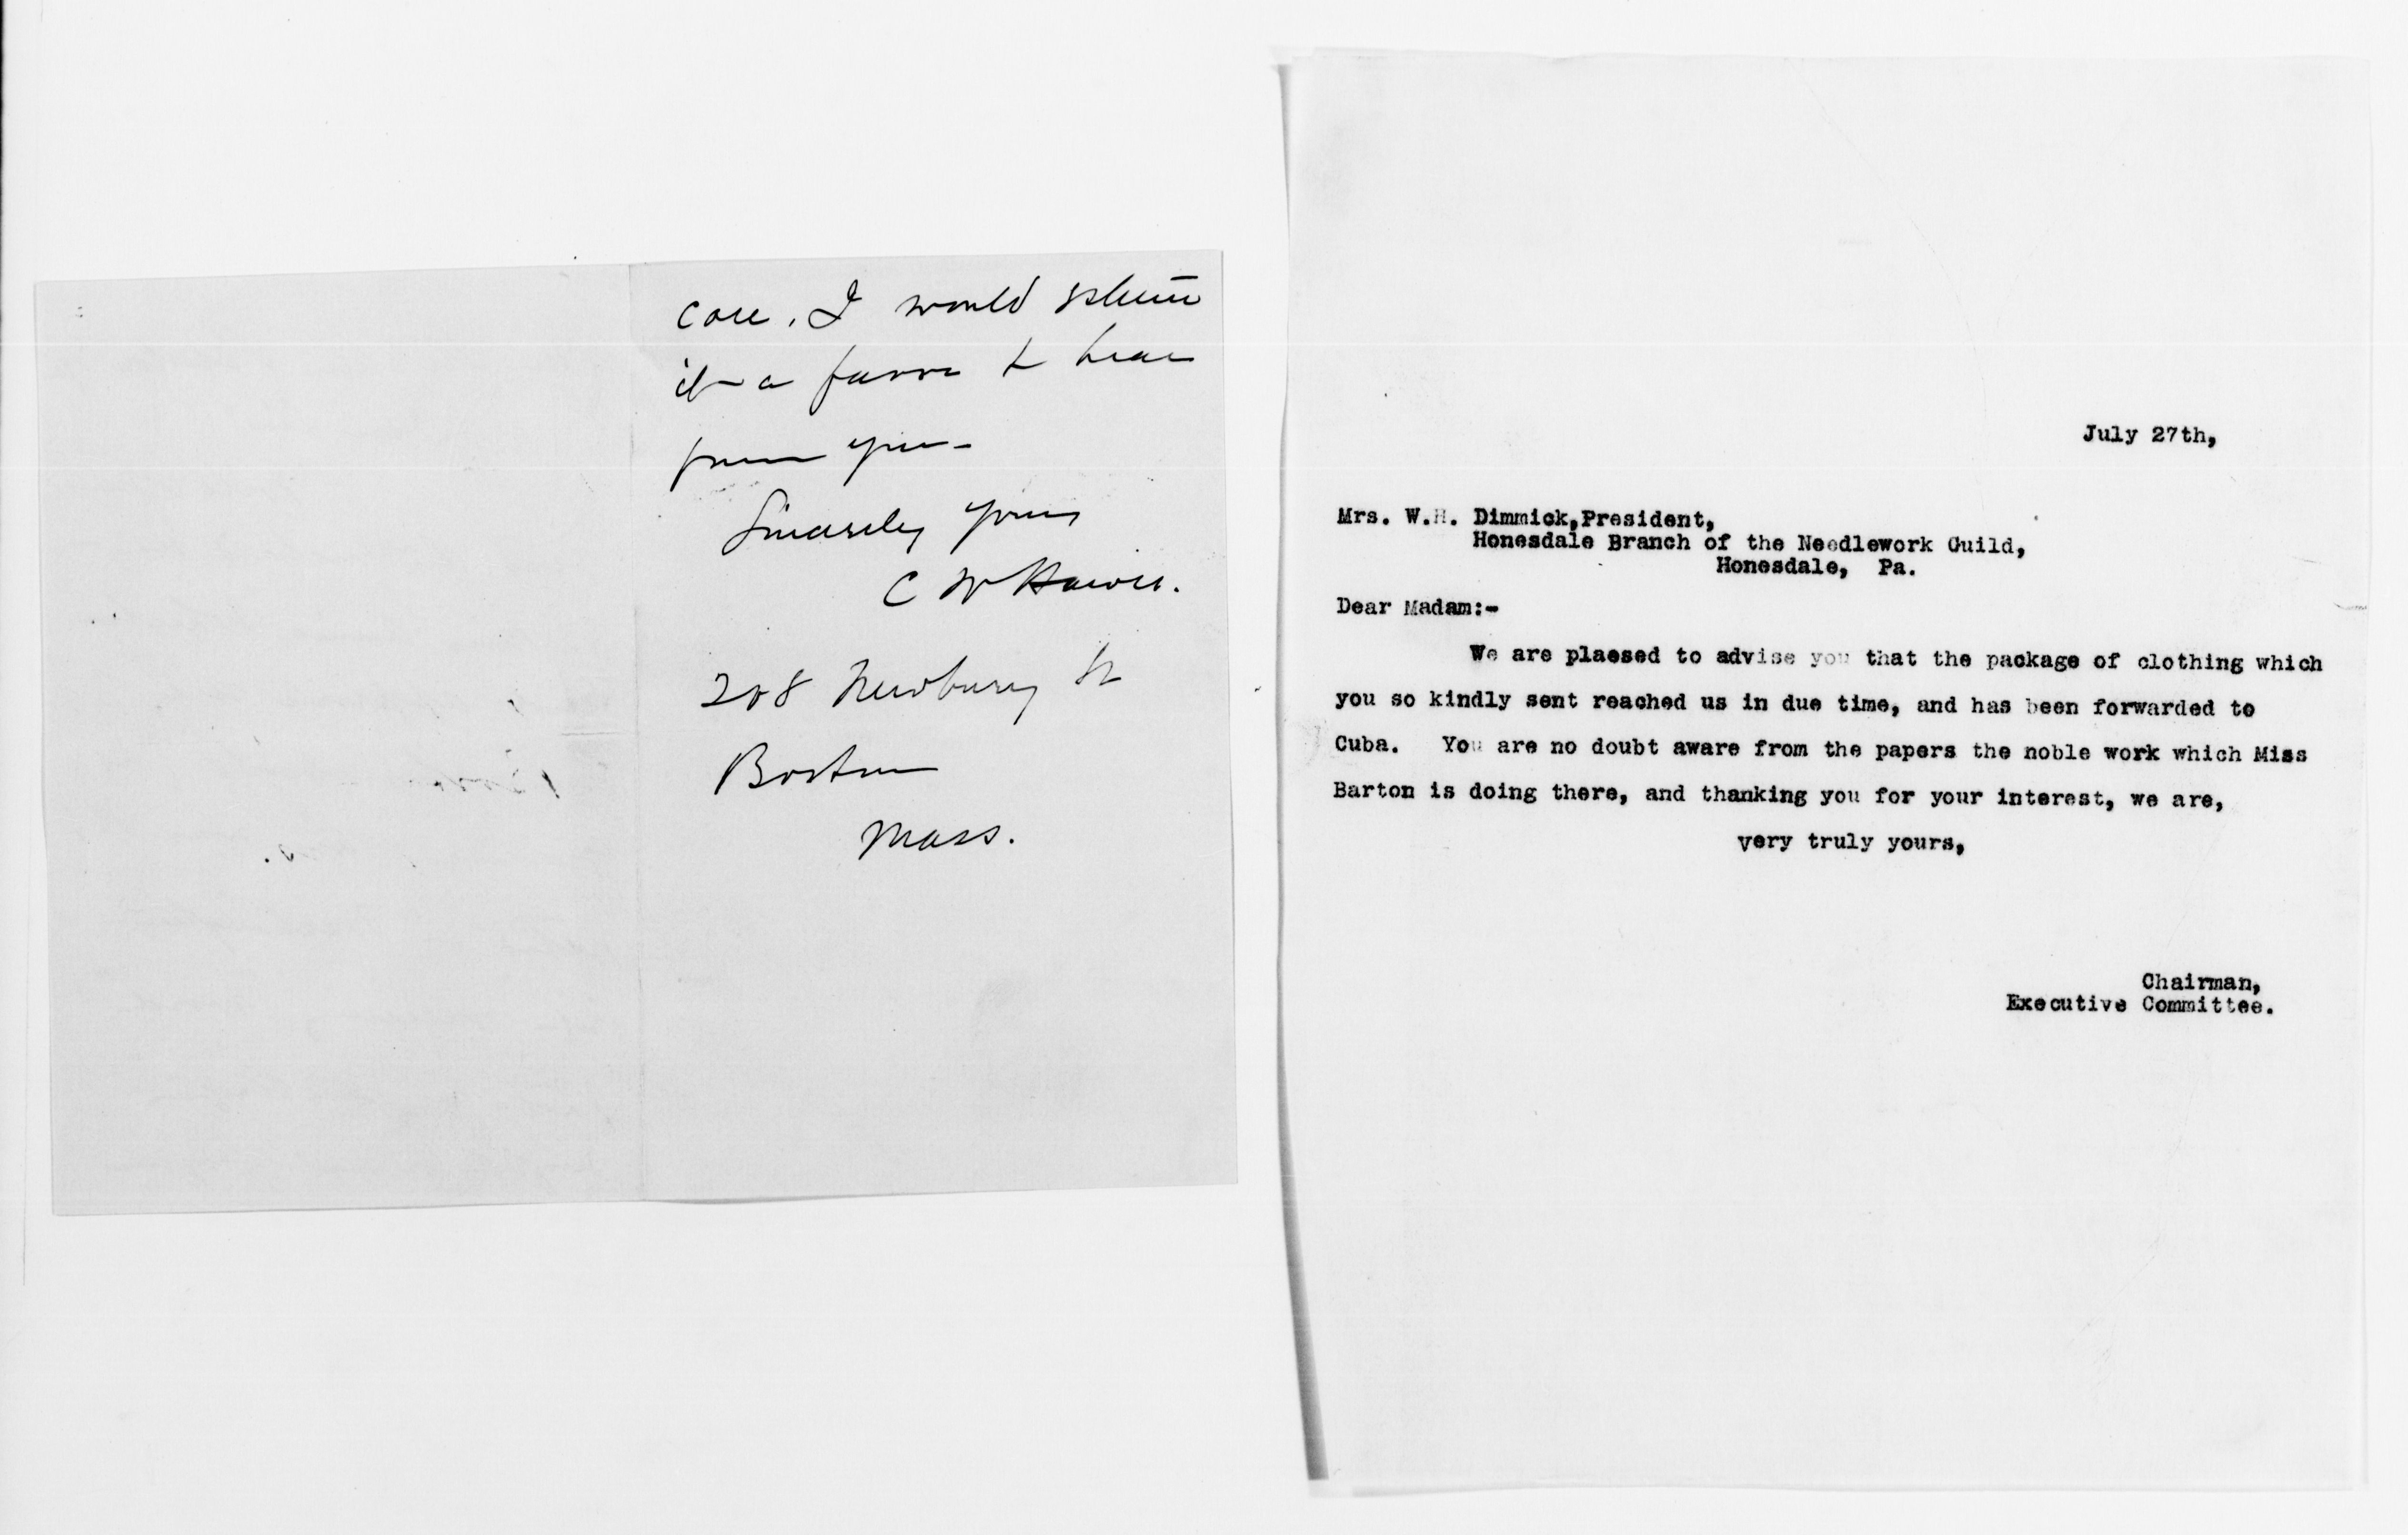 case. I would esteem
it a favor to hear
from you -
Sincerely yours
C W
208 Newbury St
Boston
Mass.
July 27th,
Mrs. W.H. Dimmick,President,
Honesdale Branch of the Needlework Guild,
Honesdale, Pa.
Dear Madam:-
We are plaesed to advise you that the package of clothing which
you so kindly sent reached us in due time, and has been forwarded to
Cuba. You are no doubt aware from the papers the noble work which Miss
Barton is doing there, and thanking you for your interest, we are,
very truly yours,
Chairman,
Executive Committee.